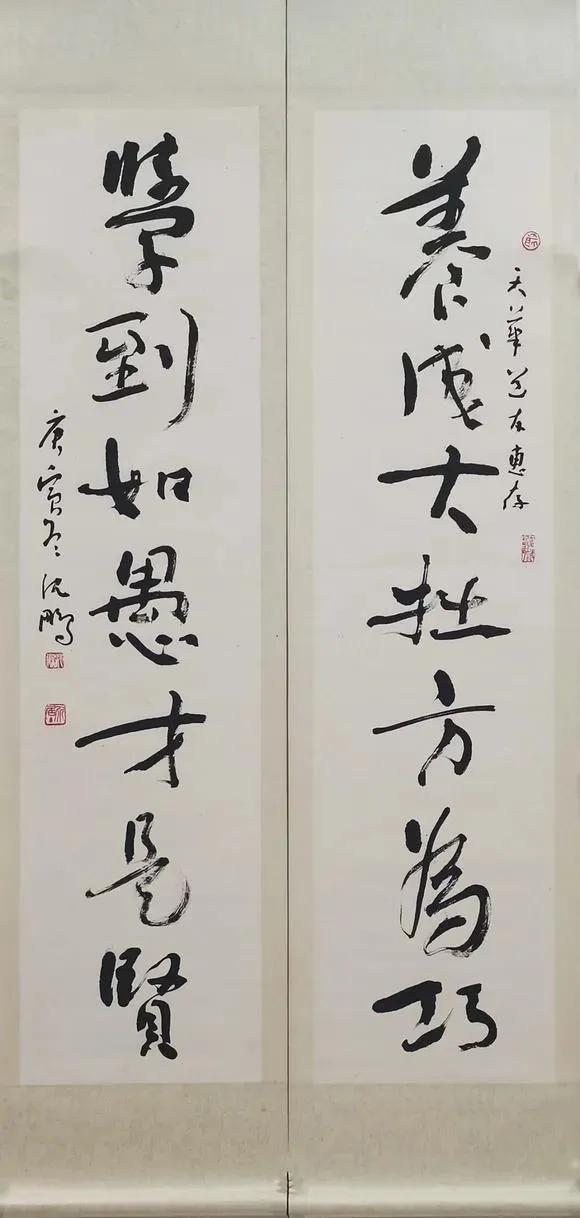 養成大拙方為巧
天華道友惠存
學到如愚才是賢
庚寅冬沈鵬